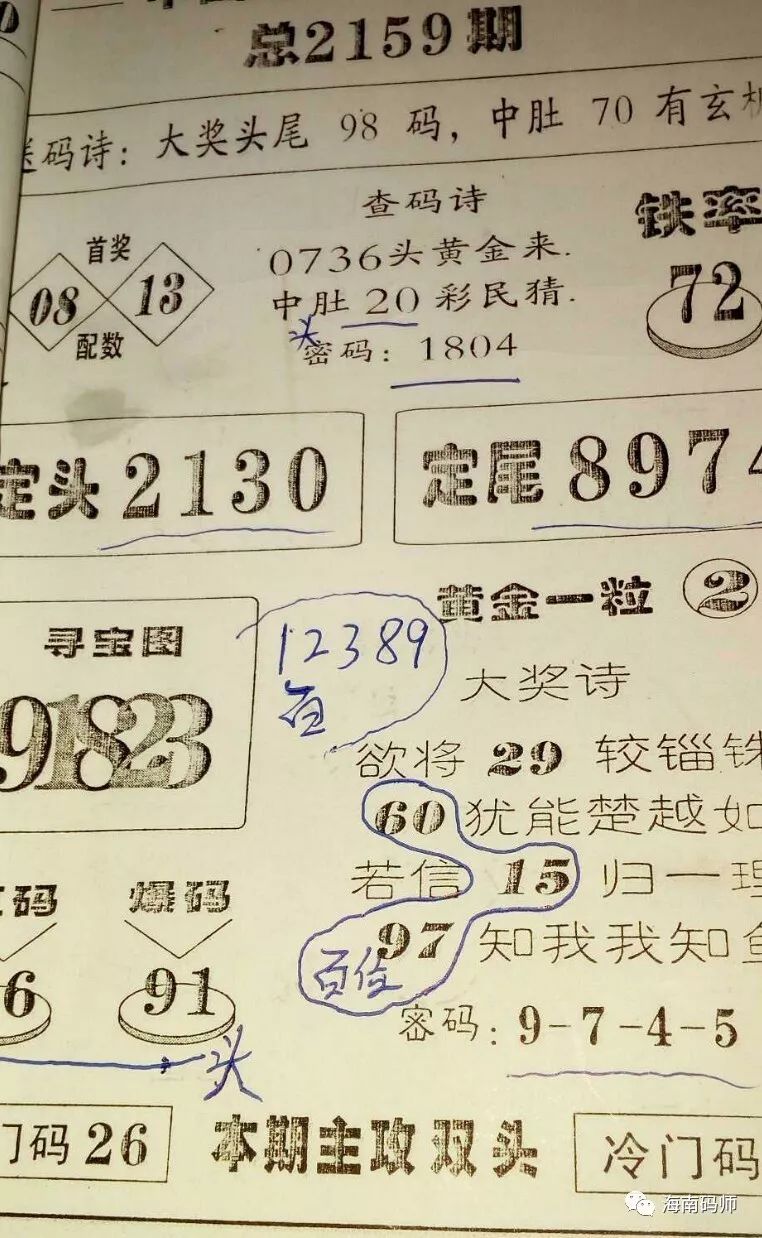 总2159期
送码诗：大奖头尾 98 码，中肚 70 有玄机
查码诗
铁率
首奖
0736头黄金来.
72
08 13
中肚 20 彩民猜.
配数
头
密码：1804
定头 2130
定尾 8974
黄金一粒 2
寻宝图
12389
百
大奖诗
91823
欲将 29 较锱铢
60 犹能楚越如
若信 15 归一理
97 知我我知鱼
百位
码 爆码
6 91
密码：9-7-4-5
头
门码 26
本期主攻双头
冷门码
海南码师